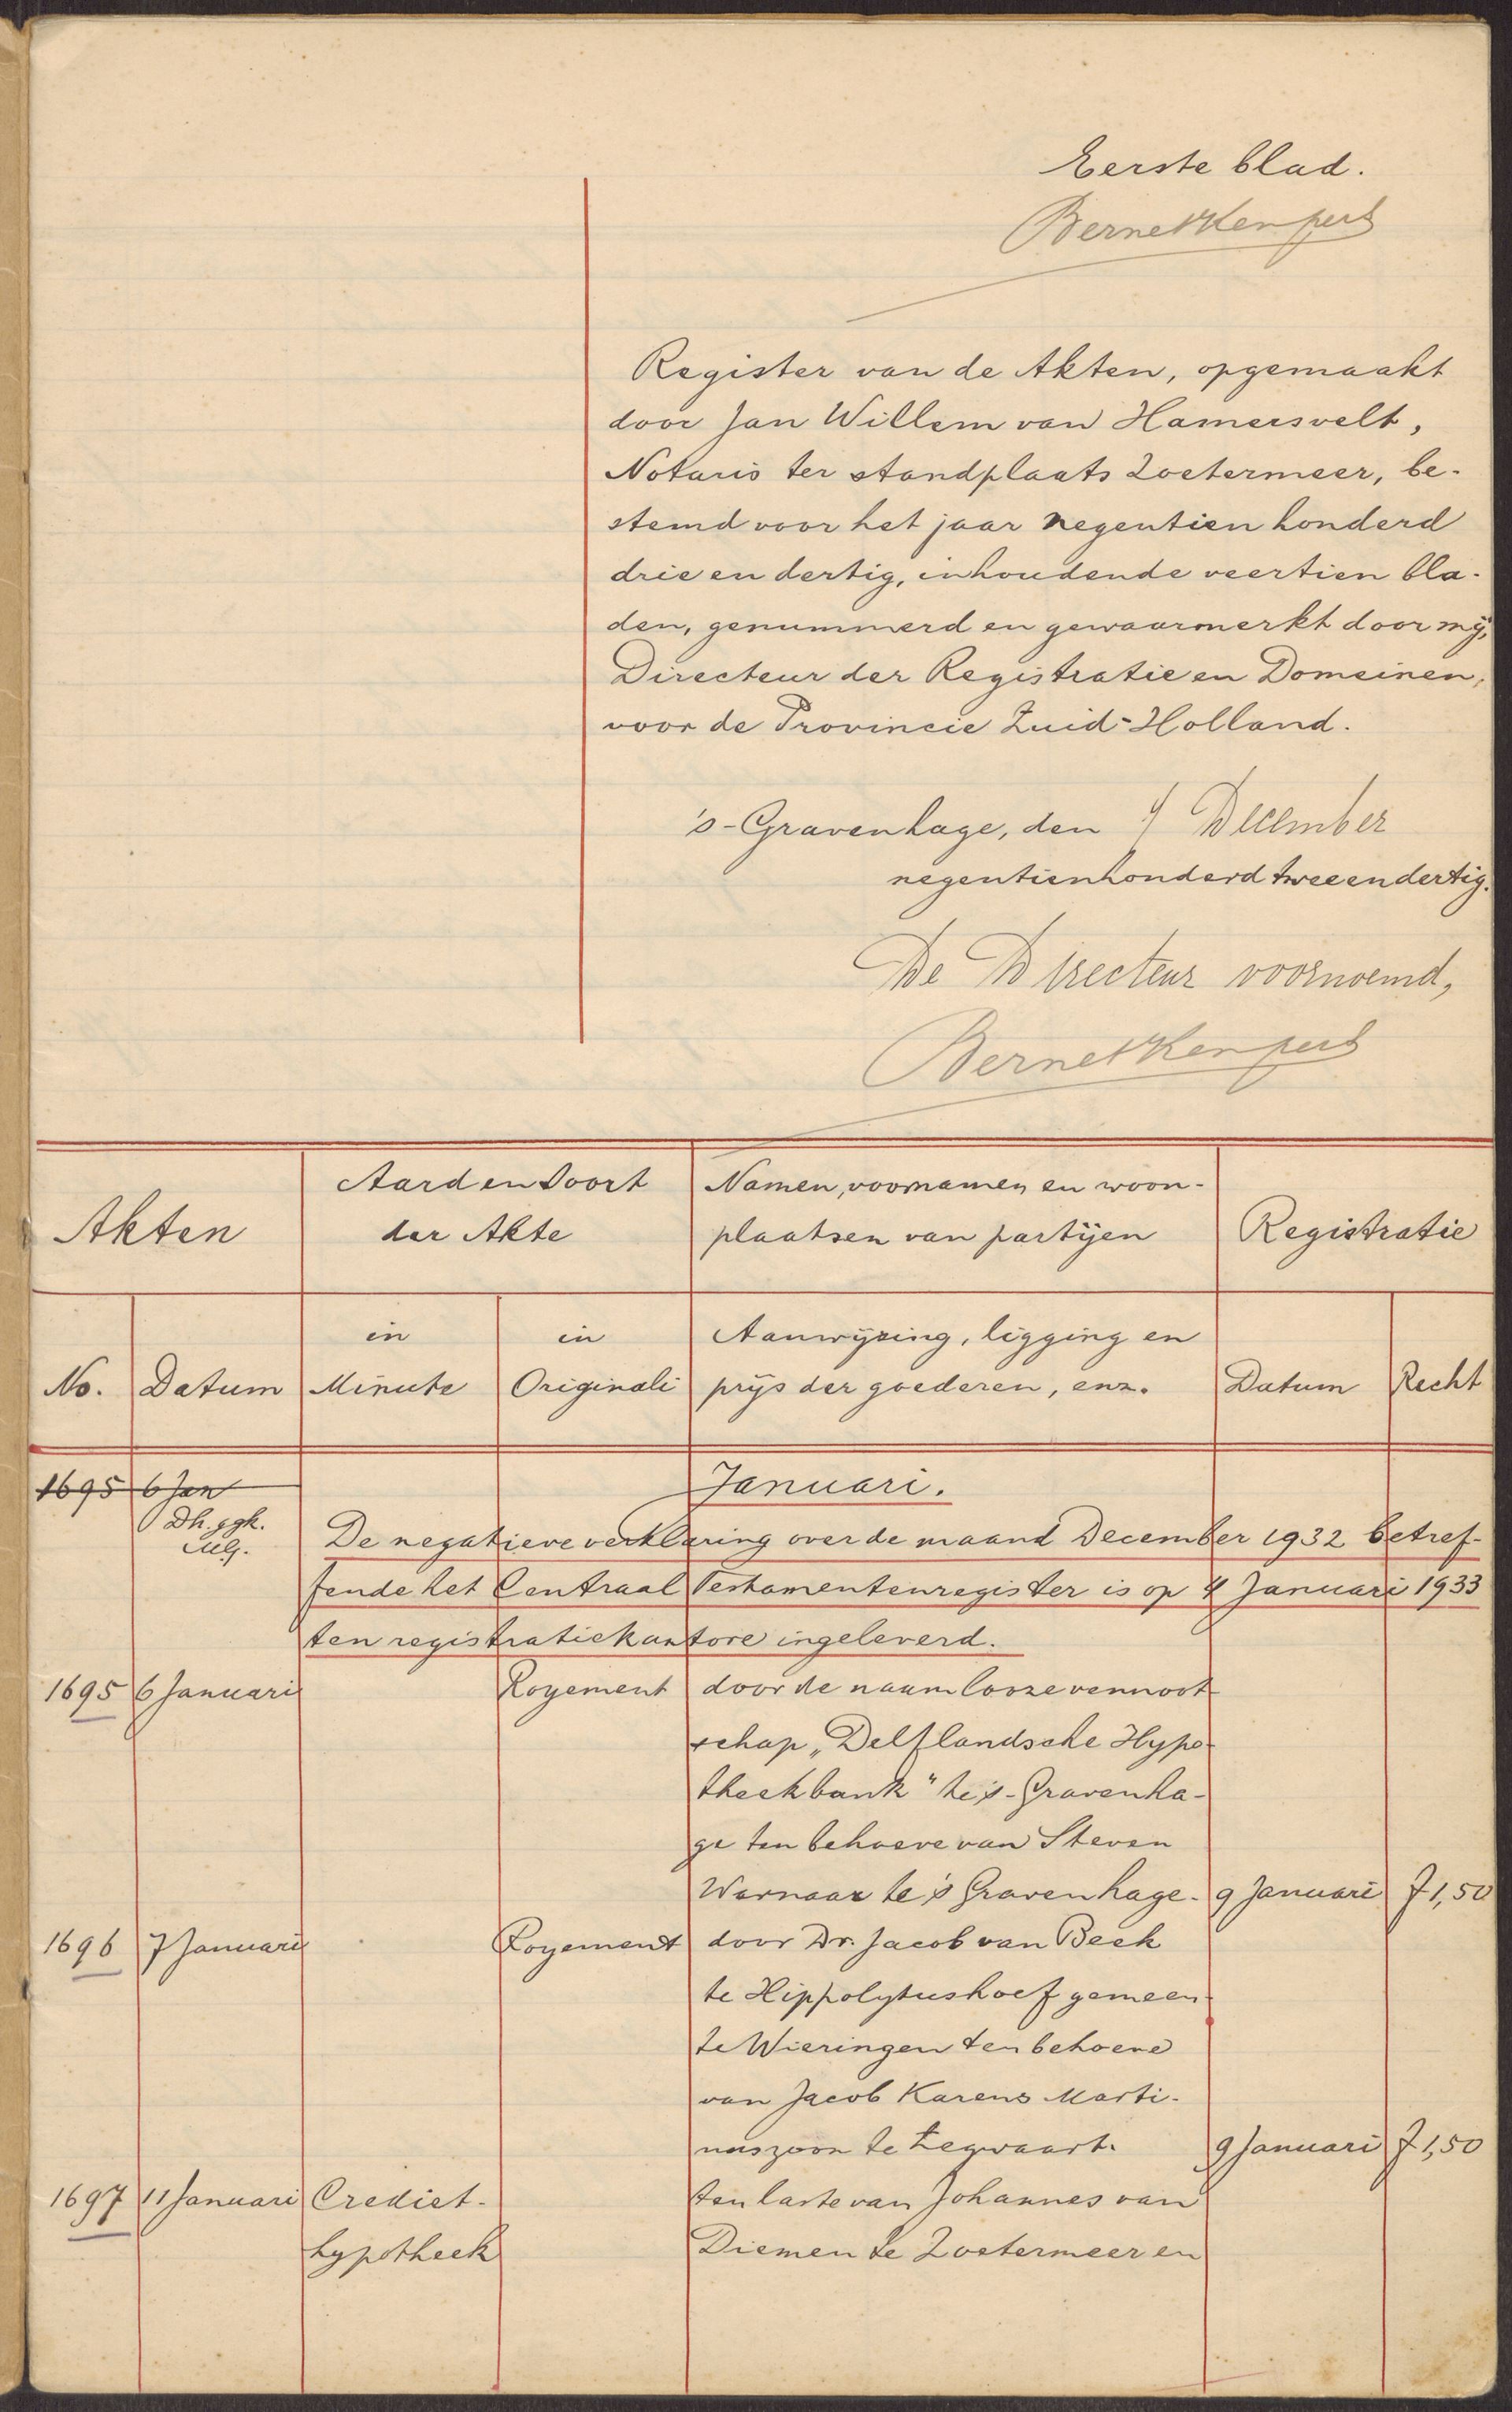 Eerste blad.
BernetKempers
Register van de Akten, opgemaakt
door Jan Willem van Hamersvelt,
Notaris ter standplaats Zoetermeer, be-
stemd voor het jaar negentien honderd
drie en dertig, inhoudende veertien bla-
den, genummerd en gewaarmerkt door mij,
Directeur der Registratie en Domeinen,
voor de Provincie Zuid-Holland.
's-Gravenhage, den December
negentienhonderd twee en dertig.
De Directeur voornoemd,
BernetKempers
Akten
Aard en Soort
der Akte
Namen, voornamen en woon-
plaatsen van partijen
Registratie
No.
Datum
in
Minute
in
Originali
Aanwijzing, ligging en
prijs der goederen, enz.
Datum
Recht
1695 6 Jan
Januari.
De negatieve verklaring over de maand December 1932 betref-
fende het Centraal Testamentenregister is op 4 Januari 1933
ten registratiekantore ingeleverd.
1695 6 Januari Royement door de naamlooze vennoot
schap „Delflandsche Hypo-
theekbank" te 's-Gravenha-
ge ten behoeve van Steven
Warnaar te 's Gravenhage. 9 Januari f 1,50
1696 7 Januari Royement door Dr. Jacob van Beek
te Hippolytushoef gemeen-
te Wieringen ten behoeve
van Jacob Karens Marti-
nuszoon te Zegwaart. 9 Januari f 1,50
1697 11 Januari Crediet- ten laste van Johannes van
hypotheek Diemen te Zoetermeer en